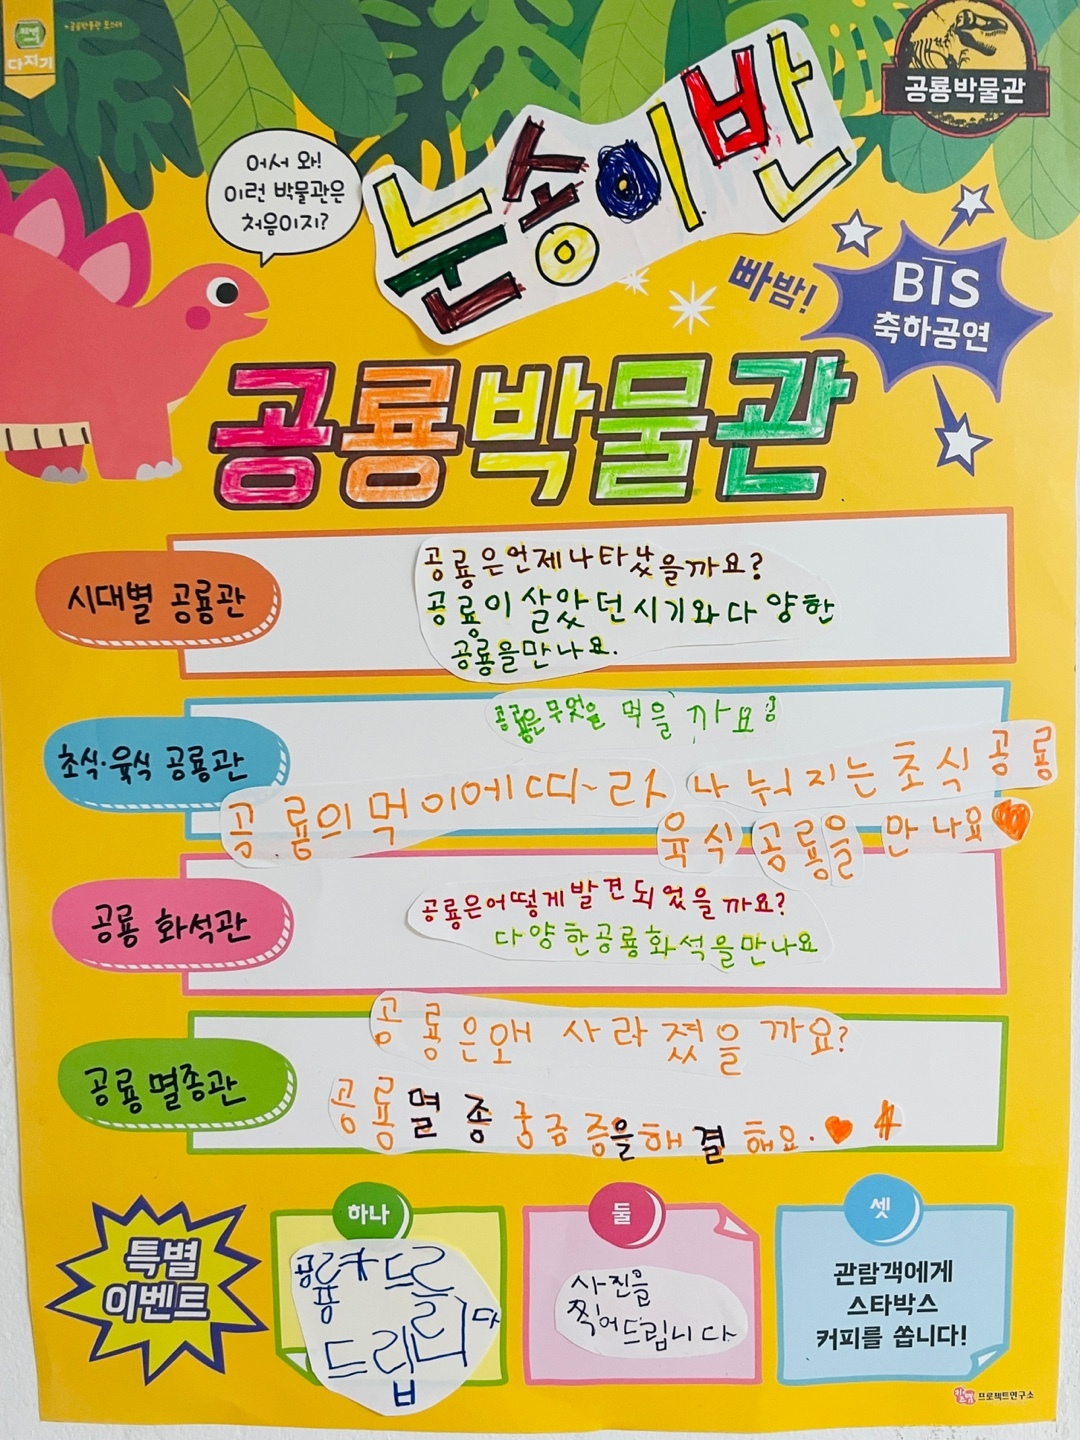 다지기
공룡박물관 포스터
공룡박물관
눈송이반
어서 와!
이런 박물관은
처음이지?
빠밤!
BIS
축하공연
공룡박물관
시대별 공룡관
공룡은언제나타났을까요?
공룡이 살았던시기와다양한
공룡을만나요.
초식·육식 공룡관
공룡은무엇을 먹을까요?
공룡의먹이에따~라 나눠지는초식공룡
육식 공룡을 만나요
공룡 화석관
공룡은어떻게발견되었을까요?
다양한공룡화석을만나요
공룡 멸종관
공룡은왜 사라졌을까요?
공룡멸종궁금증을해결해요.
특별
이벤트
하나
공룡카드를
드립니다
둘
사진을
찍어드립니다
셋
관람객에게
스타박스
커피를 쏩니다!
프로젝트연구소